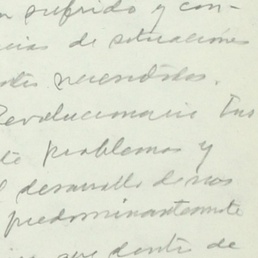 sufrido y con-
cias de situaciones
Revolucionario
te problemas y
desarrollo de
predominantemente
que dentro de